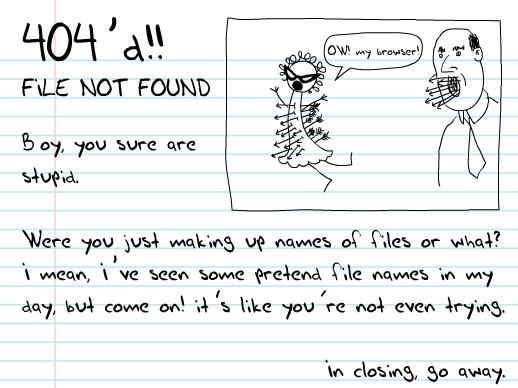 404'd!!
FiLE NOT FOUND
OW! my browser!
Boy, you sure are
stupid.
Were you just making up names of files or what?
i mean, i've seen some pretend file names in my
day, but come on! it's like you're not even trying.
in closing, go away.